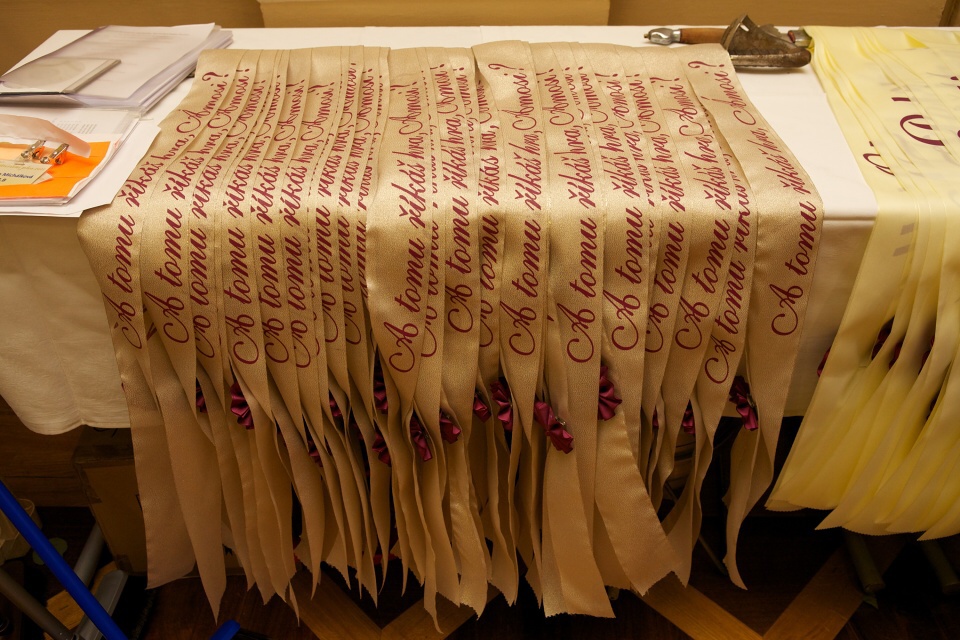 A tomu říkáš hra, Amosi?
A tomu říkáš hra,
A tomu říkáš hra,
A tomu říkáš hra,
A tomu říkáš hra,
A tomu říkáš hra,
A tomu říkáš hra,
A tomu říkáš hra, Amosi?
A tomu říkáš hra, Amosi?
A tomu říkáš hra,
A tomu říkáš hra, Amosi?
A tomu říkáš hra, Amosi?
A tomu říkáš hra, Amosi?
A tomu říkáš hra, Amosi?
A tomu říkáš hra, Amosi?
A tomu říkáš hra, Amosi?